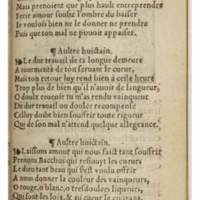 Mais prenoient que plus hault entreprendre
Ferie amour soubz l'ombre du baiser
Je voulois bien ne le donner ne prendre
Puis que ton mal ne pouoit appaiser.
¶ Aultre huictain.
Le dur travail de ta longue demeure
A tourmenté de ton servant le cueur,
Mais ton retour luy rend bien à ceste heure
Trop plus de bien qu'il n'avoit de langueur,
O doulx retour tu m'as rendu vainqueur
Du dur travail ou douleur recompense
Celluy doibt bien souffrir toute rigueur
Qui de son mal n'attend quelque allegeance.
¶ Aultre huictain.
Laissons amour qui nous faict tant souffrir
Prenons Bacchus qui resiouyt les cueurs
Le dieu tant beau qui s'est voulu offrir
A nous donner la couleur des vainqueurs,
O rouge, o blanc, o tresdoulces liqueurs,